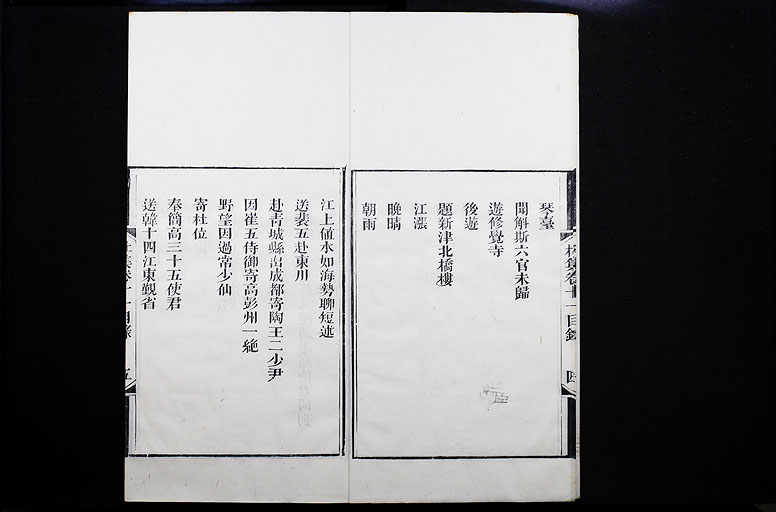 琴臺
聞斛斯六官未歸
遊修覺寺
後遊
題新津北橋樓
江漲
晚晴
朝雨
江上値水如海勢聊短述
送裴五赴東川
赴青城縣出成都寄陶王二少尹
因崔五侍御寄高彭州一絶
野望因過常少仙
寄杜位
奉簡高三十五使君
送韓十四江東覲省